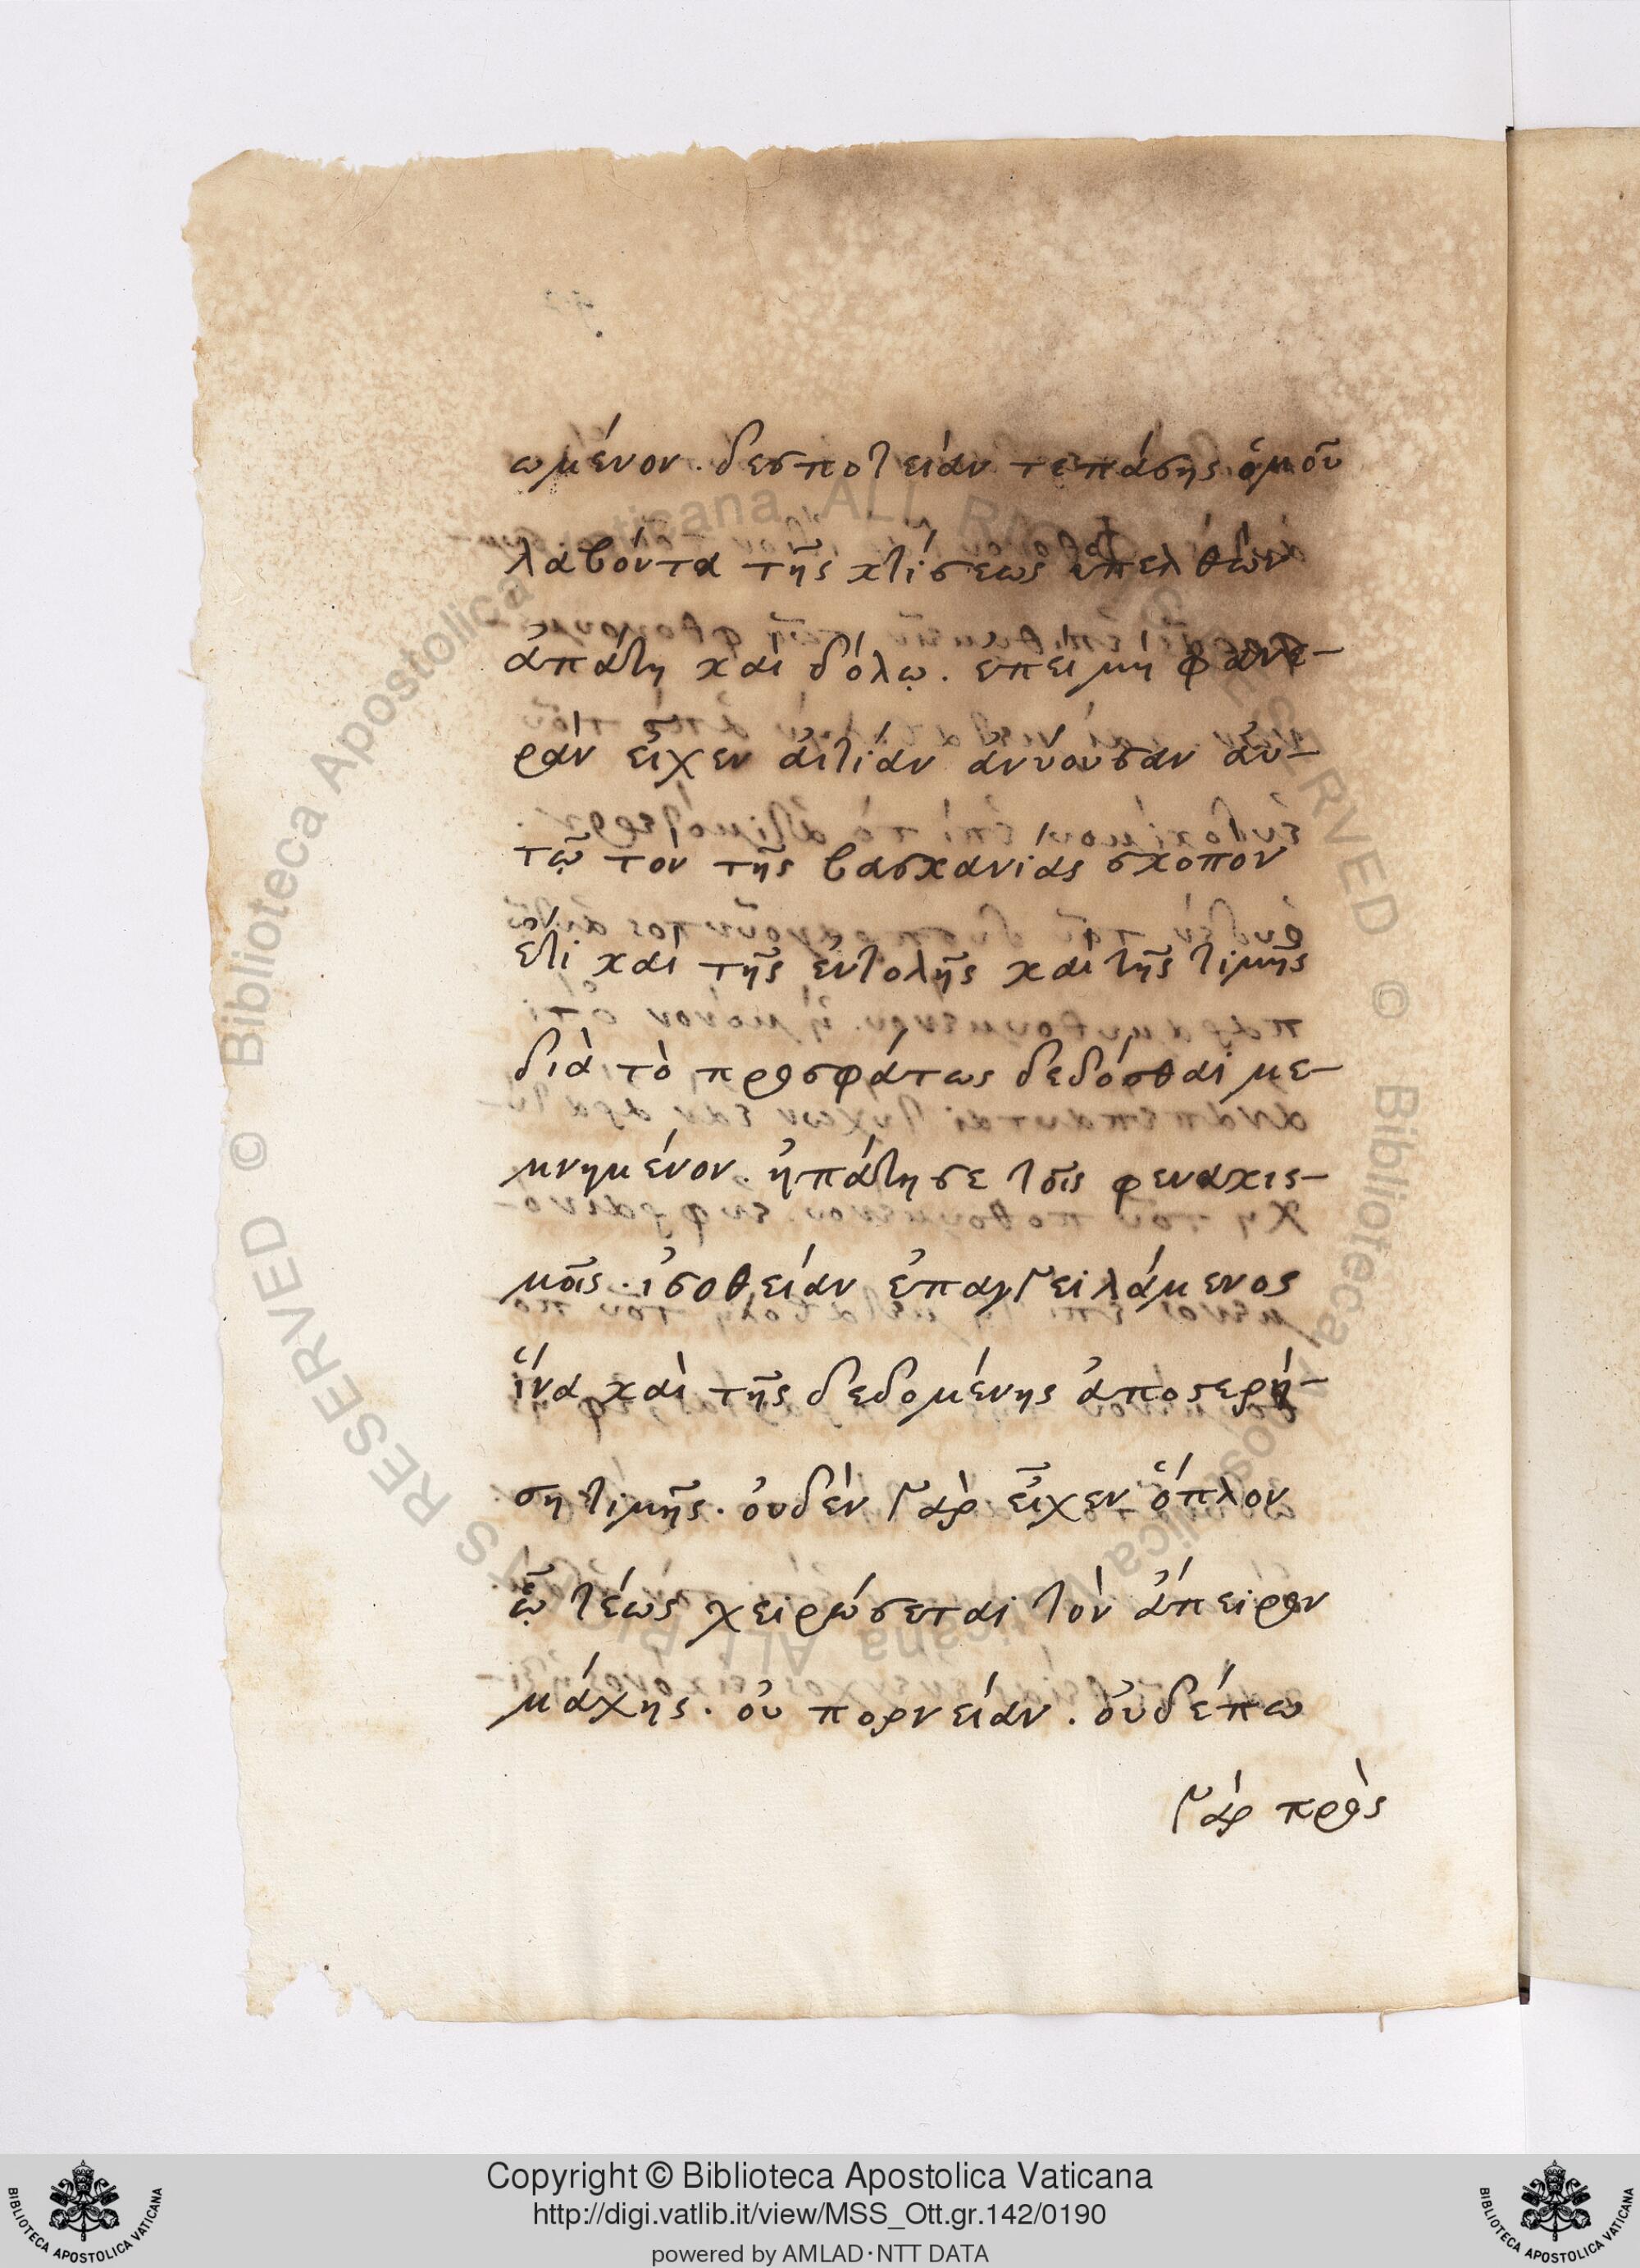 ωμένον. δεσποτείαν τε πάσης ὁμοῦ
λαβόντα τῆς κτίσεως ὑπελθὼν
ἀπάτη καὶ δόλῳ. επει μὴ φανε-
ρὰν εἶχεν ἀιτίαν ἀνύουσαν ἀυ-
τῷ τον τῆς βασκανίας σκοπον
ετι καὶ τῆς ἐντολῆς καὶ τῆς τιμῆς
διὰ τὸ προσφάτως δεδόσθαι με-
μνημένον. ἠπάτησε τοῖς φενακισ-
μοῖς. ἰσοθείαν ἐπαγγειλάμενος
ἵνα καὶ τῆς δεδομένης ἀποστερή-
ση τιμῆς. ὀυδὲν γὰρ εἶχεν ὅπλον
ᾧ τέως χειρώσεται τὸν ἄπειρον
μάχης. ὀυ πορνείαν. ὀυδέπω
γάρ πρὸς
Copyright © Biblioteca Apostolica Vaticana
http://digi.vatlib.it/view/MSS_Ott.gr.142/0190
powered by AMLAD·NTT DATA
BIBLIOTECA APOSTOLICA VATICANA
BIBLIOTECA APOSTOLICA VATICANA